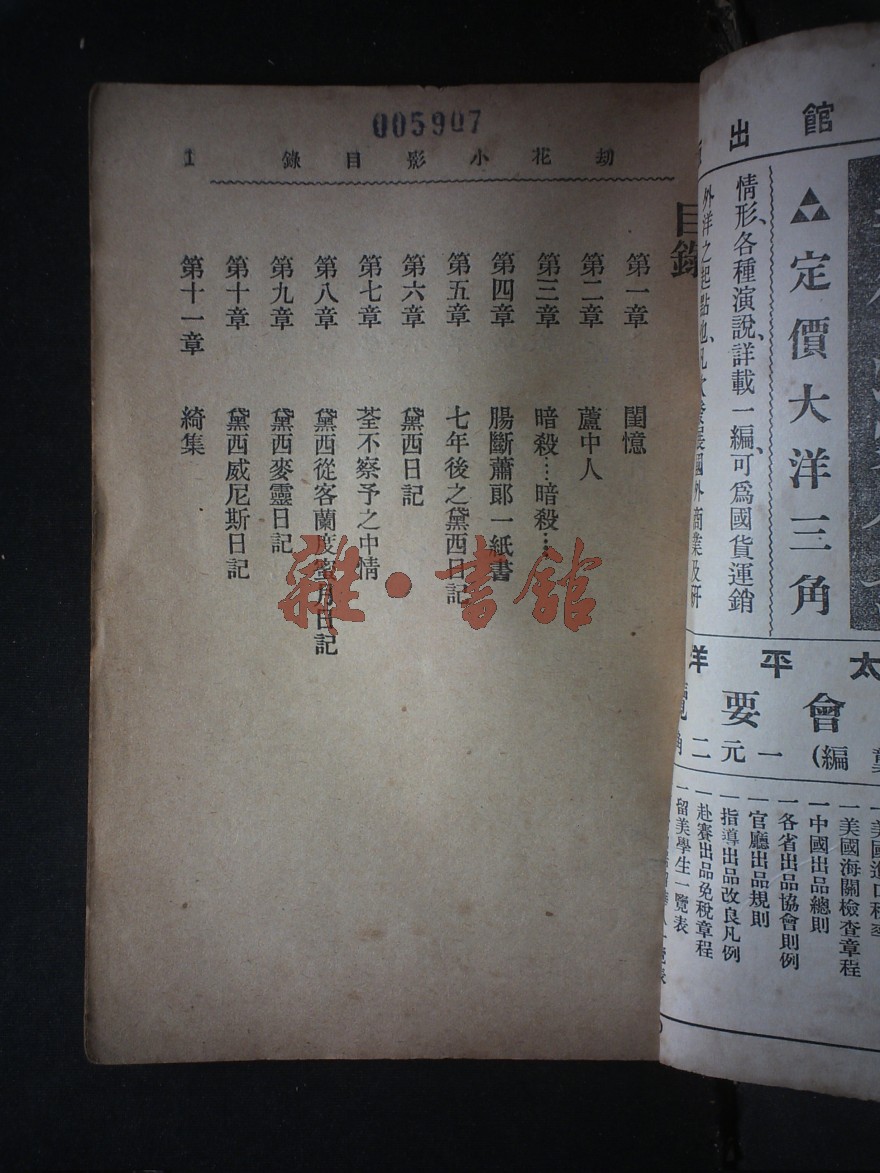 005907
劫花小影目錄
1
目錄
第一章 閨憶
第二章 蘆中人
第三章 暗殺…暗殺…
第四章 腸斷蕭郎一紙書
第五章 七年後之黛西日記
第六章 黛西日記
第七章 荃不察予之中情
第八章 黛西從客蘭度蜜月日記
第九章 黛西麥靈日記
第十章 黛西威尼斯日記
第十一章 綺集
雜·書館
館出
定價大洋三角
情形、各種演說、詳載一編、可爲國貨運銷
外洋之起點也、凡
國外商業及研
太平洋
會要
編)一元二角
一美國海關檢查章程
一中國出品總則
一各省出品協會則例
一官廳出品規則
一指導出品改良凡例
一赴賽出品免稅章程
一留美學生一覽表